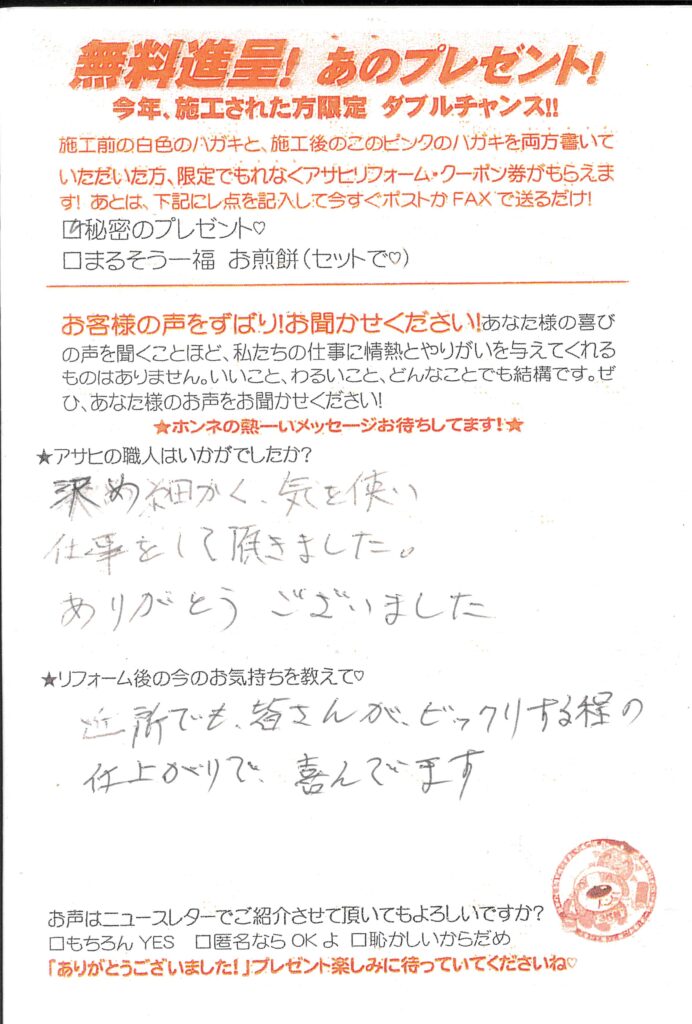 無料進呈! あのプレゼント!
今年、施工された方限定 ダブルチャンス!!
施工前の白色のハガキと、施工後のこのピンクのハガキを両方書いて
いただいた方、限定でもれなくアサヒリフォーム・クーポン券がもらえま
す! あとは、下記にレ点を記入して今すぐポストか FAX で送るだけ!
☑秘密のプレゼント♡
□まるそう一福 お煎餅(セットで♡)
お客様の声をずばり!お聞かせください!あなた様の喜び
の声を聞くことほど、私たちの仕事に情熱とやりがいを与えてくれる
ものはありません。いいこと、わるいこと、どんなことでも結構です。ぜ
ひ、あなた様のお声をお聞かせください!
★ホンネの熱ーいメッセージお待ちしてます!★
★アサヒの職人はいかがでしたか?
め細かく、気を使い
仕事をして頂きました。
ありがとう ございました
★リフォーム後の今のお気持ちを教えて♡
近所でも、皆さんが、ビックリする程の
仕上がりで、喜んでます
お声はニュースレターでご紹介させて頂いてもよろしいですか?
□もちろん YES □匿名なら OK よ □恥かしいからだめ
「ありがとうございました!」プレゼント楽しみに待っていてくださいね♡